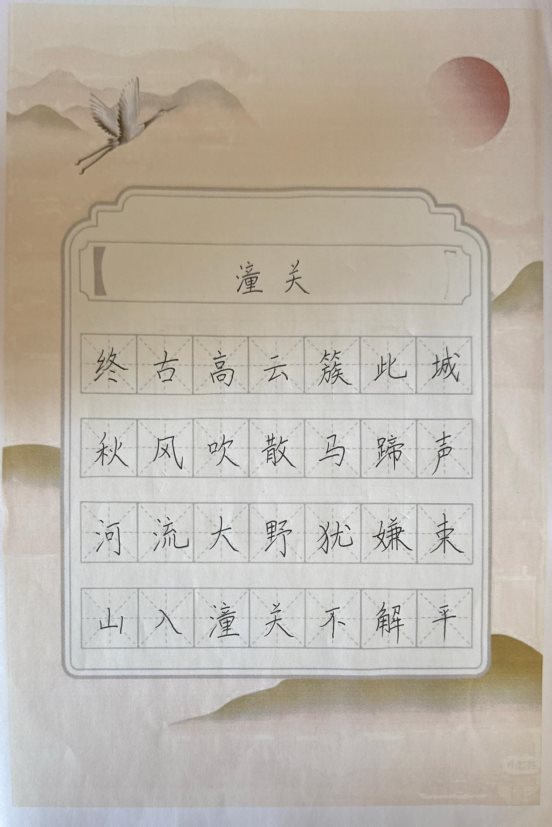 潼关
终古高云簇此城
秋风吹散马蹄声
河流大野犹嫌束
山入潼关不解平